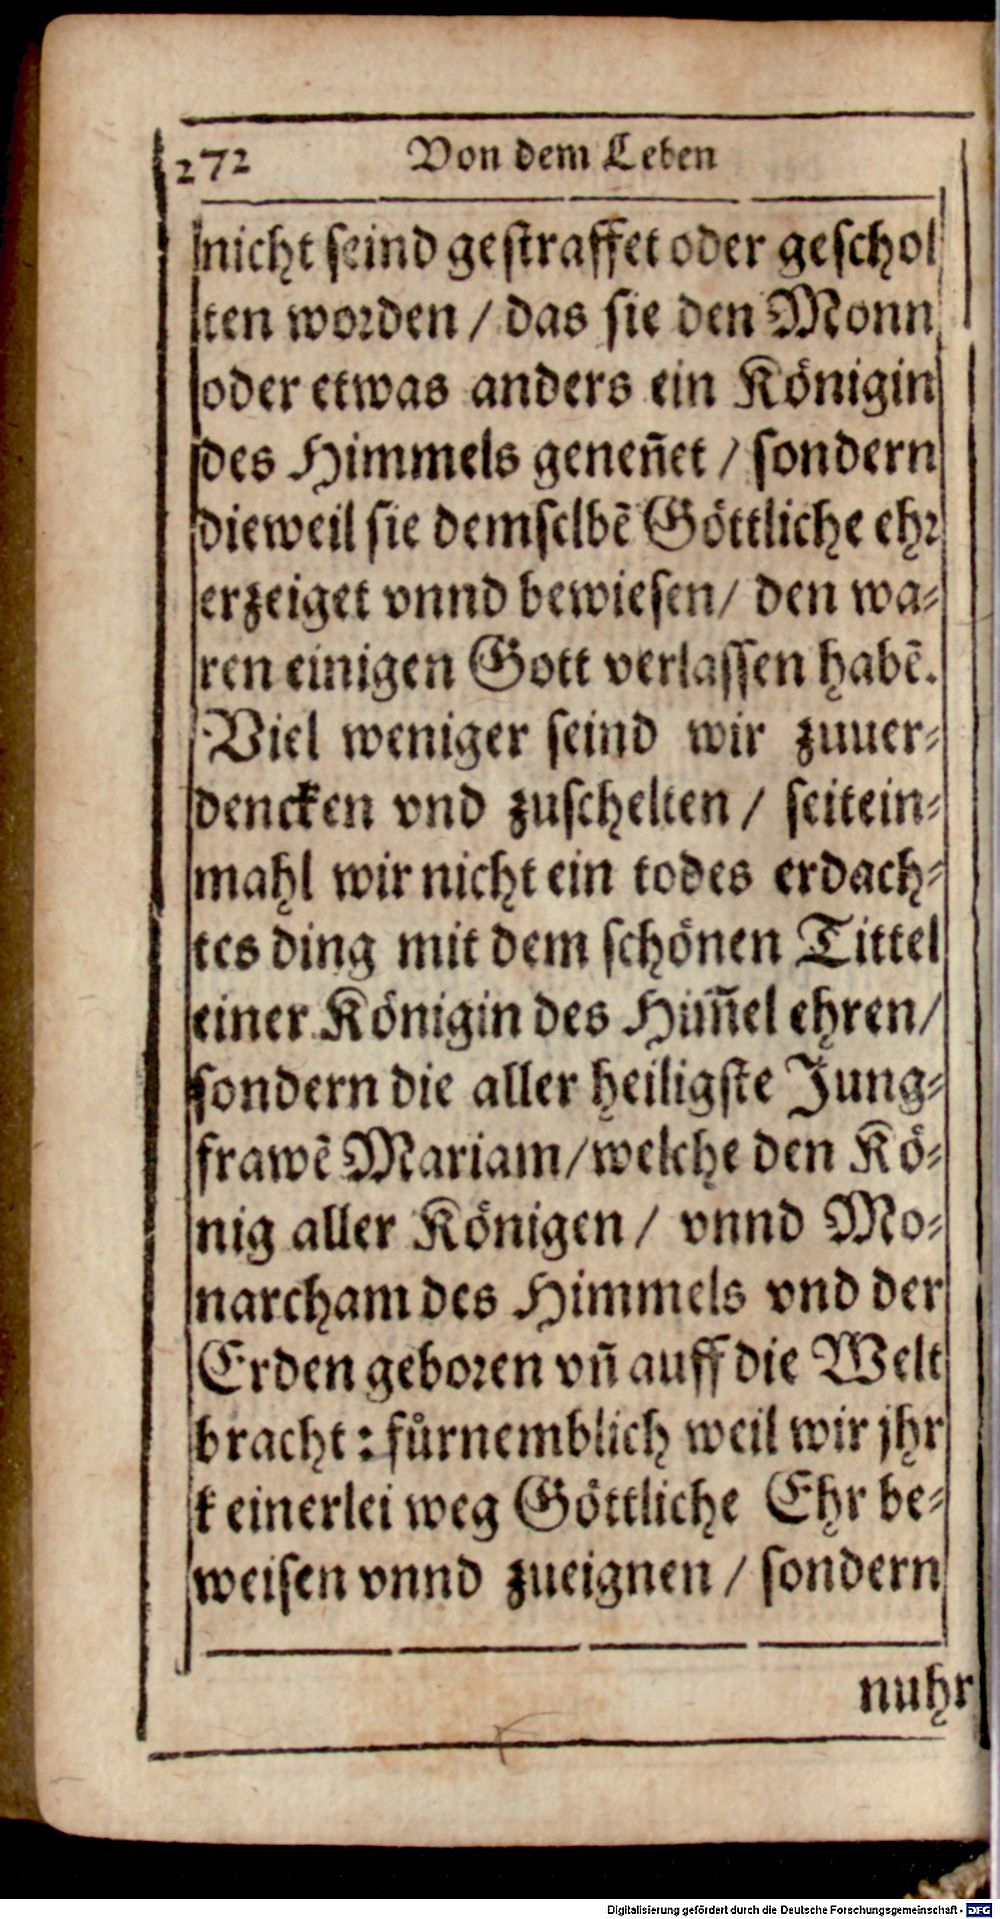 272 Von dem Leben
nicht seind gestraffet oder geschol
ten worden / das sie den Monn
oder etwas anders ein Königin
des Himmels geneñet / sondern
dieweil sie demselbē Göttliche ehr
erzeiget vnnd bewiesen / den wa-
ren einigen Gott verlassen habē.
Viel weniger seind wir zuuer-
dencken vnd zuschelten / seitein-
mahl wir nicht ein todes erdach-
tes ding mit dem schönen Tittel
einer Königin des Him̃el ehren /
sondern die aller heiligste Jung-
frawē Mariam / welche den Kö-
nig aller Königen / vnnd Mo-
narcham des Himmels vnd der
Erden geboren vñ auff die Welt
bracht : fůrnemblich weil wir jhr
keinerlei weg Göttliche Ehr be-
weisen vnnd zueignen / sondern
nuhr
Digitalisierung gefördert durch die Deutsche Forschungsgemeinschaft - DFG